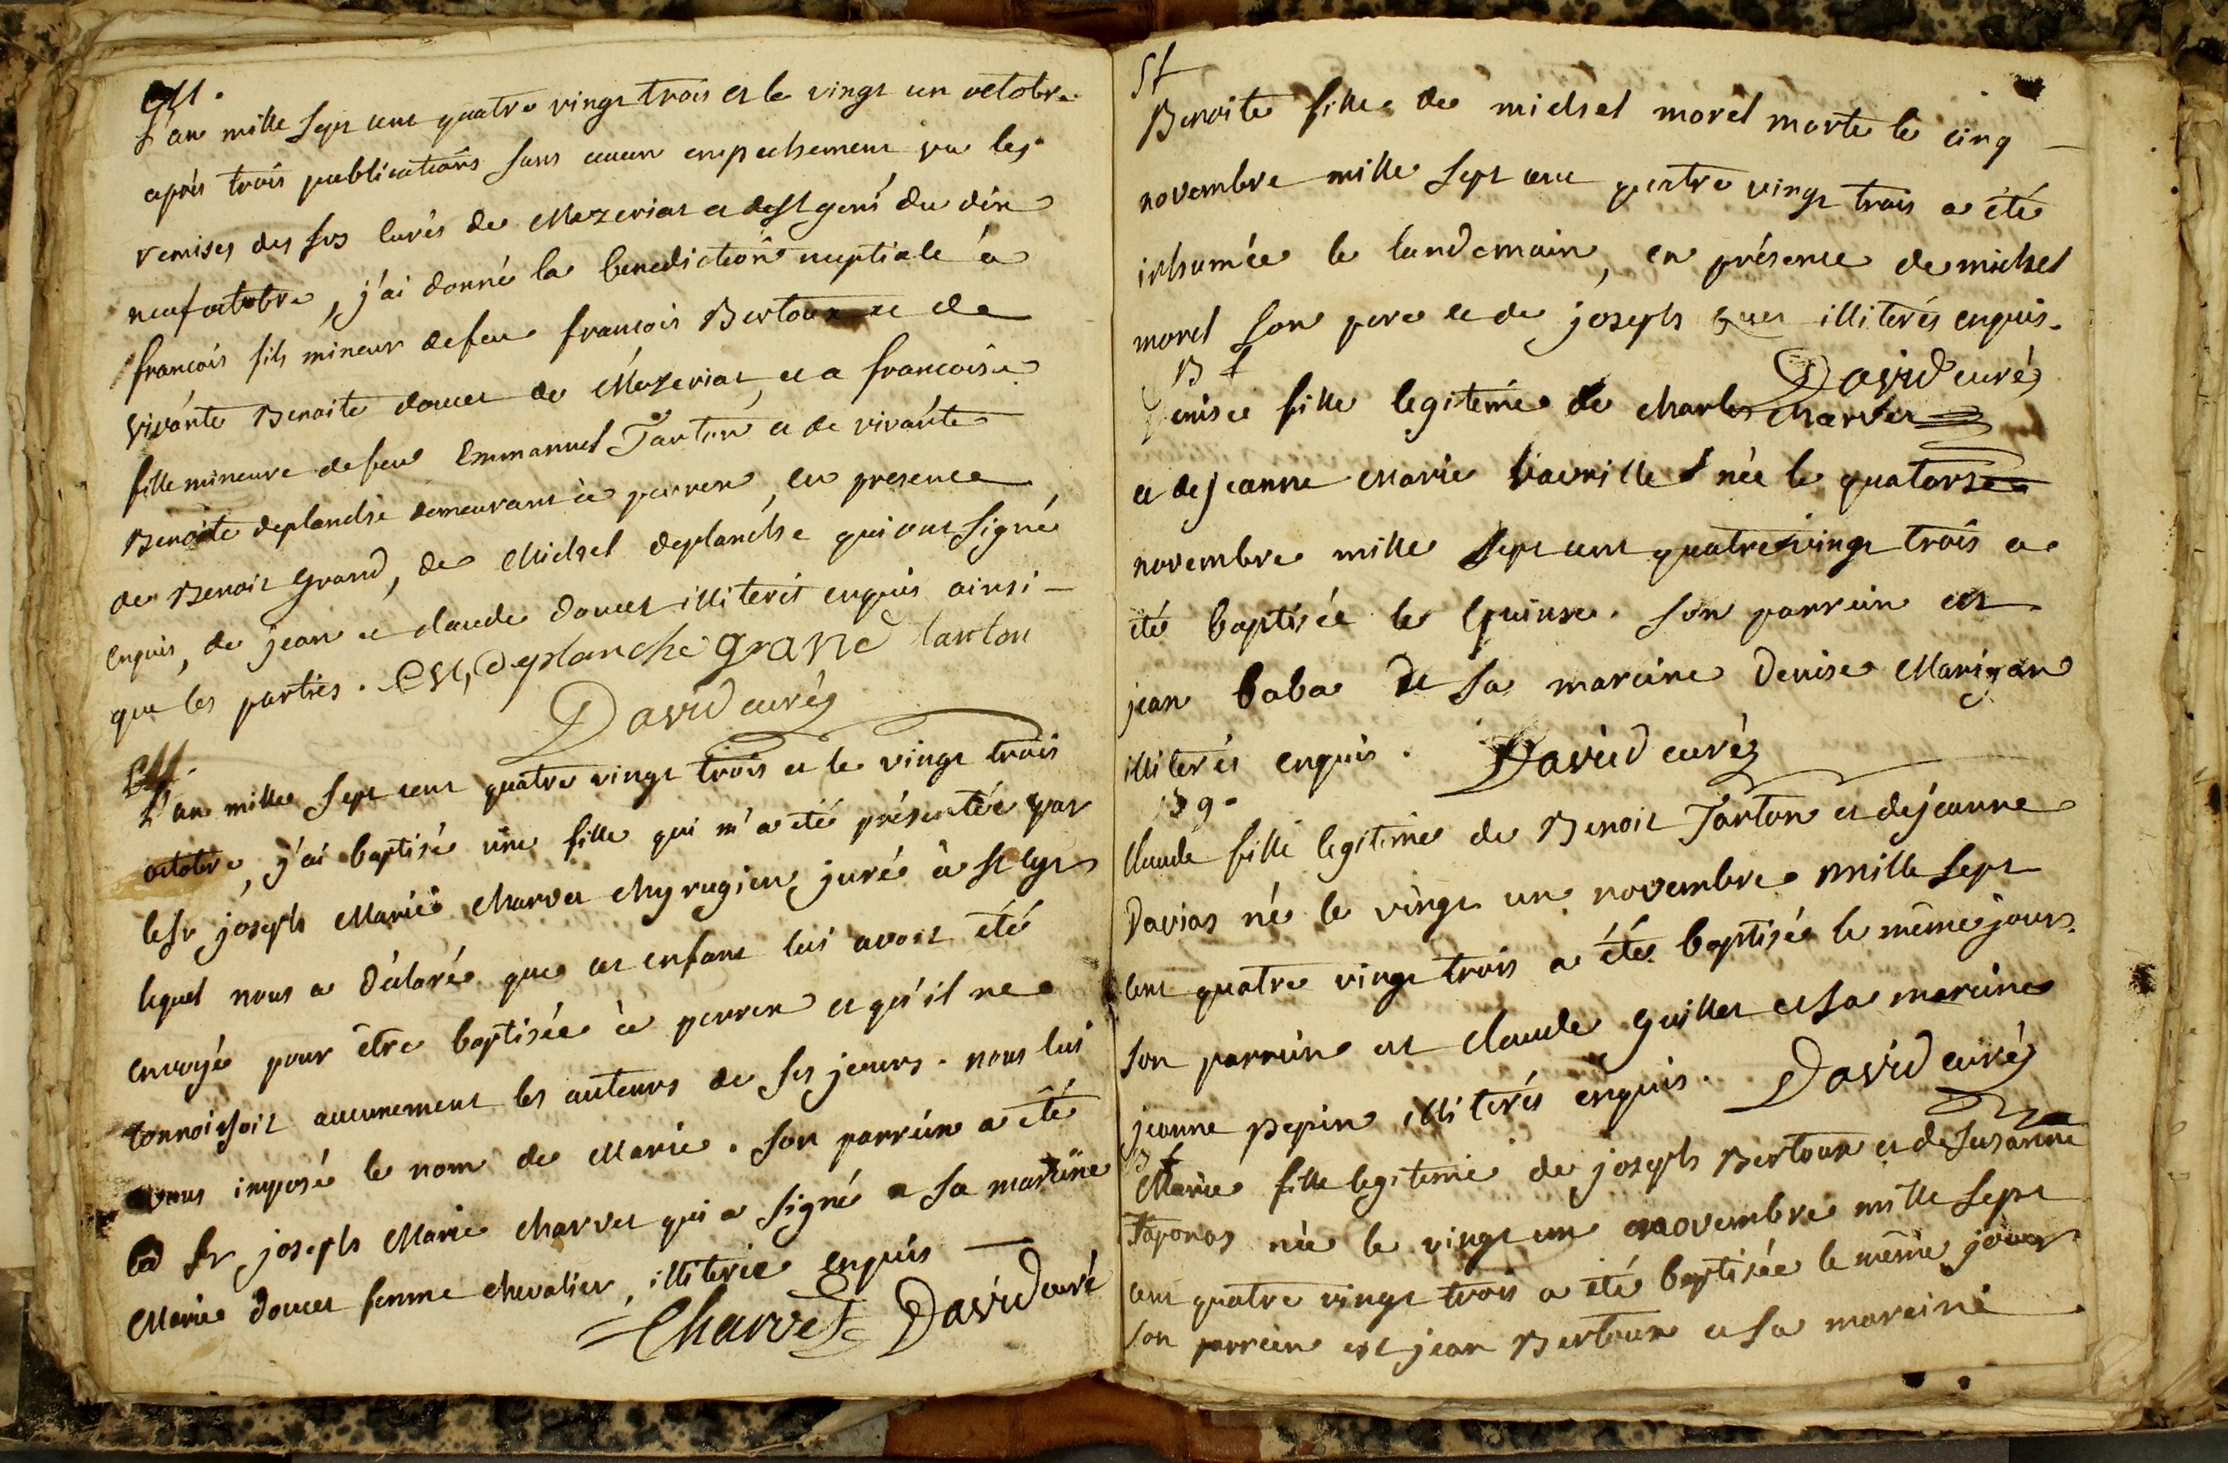 L'an mille sept cent quatre vingt trois et le vingt un octobre
après trois publications sans aucun empechement vu les
remises des srs curés de Mezeriat et de st genis du dix
neuf octobre, j'ai donné la benediction nuptiale à
francois fils mineur de feu francois Bertoux et de
vivante Benoite doucet de Mezeriat, et a francoise
fille mineure de feu Emmanuel Tarton et de vivante
Benoite deplanche demeurant à perrex, en presence
de Benoit Grand, de Michel deplanche qui ont signé
enquis, de jean et claude doucet illiterés enquis ainsi
que les parties. deplanche grand tarton
David curé
L'an mille sept cent quatre vingt trois et le vingt trois
octobre, j'ai baptisé une fille qui m'a été présentée par
le sr joseph Marie charvet chyrugien juré à st cyr
lequel nous a déclaré que cet enfant lui avoit été
envoyé pour être baptisée à perrex et qu'il ne
connoissoit aucunement les auteurs de ses jours. nous lui
avons imposé le nom de Marie. son parrein a été
led sr joseph Marie charvet qui a signé et sa mareine
Marie doucet femme chevalier, illiterée enquis
Charvet David curé
Sf
Benoite fille de michel morel morte le cinq
novembre mille sept cent quatre vingt trois a été
inhumée le landemain, en présence de michel
morel son pere et de joseph illiterés enquis.
David curé
B f
Denise fille legiteme de charles charvet
et de jeanne Marie née le quatorse
novembre mille sept cent quatre vingt trois a
été baptisée le quinse. son parrein est
jean baba et sa mareine Denise Marigan
illiterés enquis. David curé
B g
Claude fille legiteme de Benoit Tarton et de jeanne
Davias né le vingt un novembre mille sept
cent quatre vingt trois a été baptisée le même jour.
son parrein est claude guillet et sa mareine
jeanne pepin illiterés enquis. David curé
B f
Marie fille legiteme de joseph Bertoux et de Susanne
Taponas née le vingt un novembre mille sept
cent quatre vingt trois a été baptisée le même jour
son parrein est jean Bertoux et sa mareine